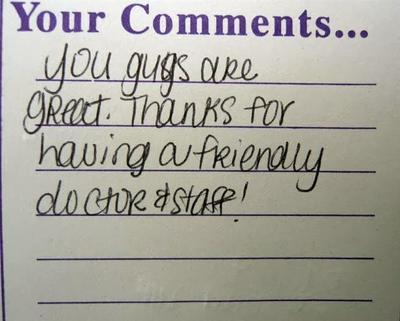 Your Comments...
you guys are
great. Thanks for
having a friendly
doctor & staff!